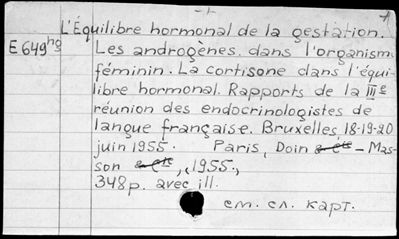 L'Équilibre hormonal de la gestation.
E 649 hg
Les androgènes dans l'organism
féminin. La cortisone dans l'équi-
libre hormonal. Rapports de la IIIe
réunion des endocrinologistes de
langue française. Bruxelles, 18-19-20
juin 1955. Paris, Doin & Cie – Mas-
son & Cie, 1955.,
348 p. avec ill.
см. сл. карт.